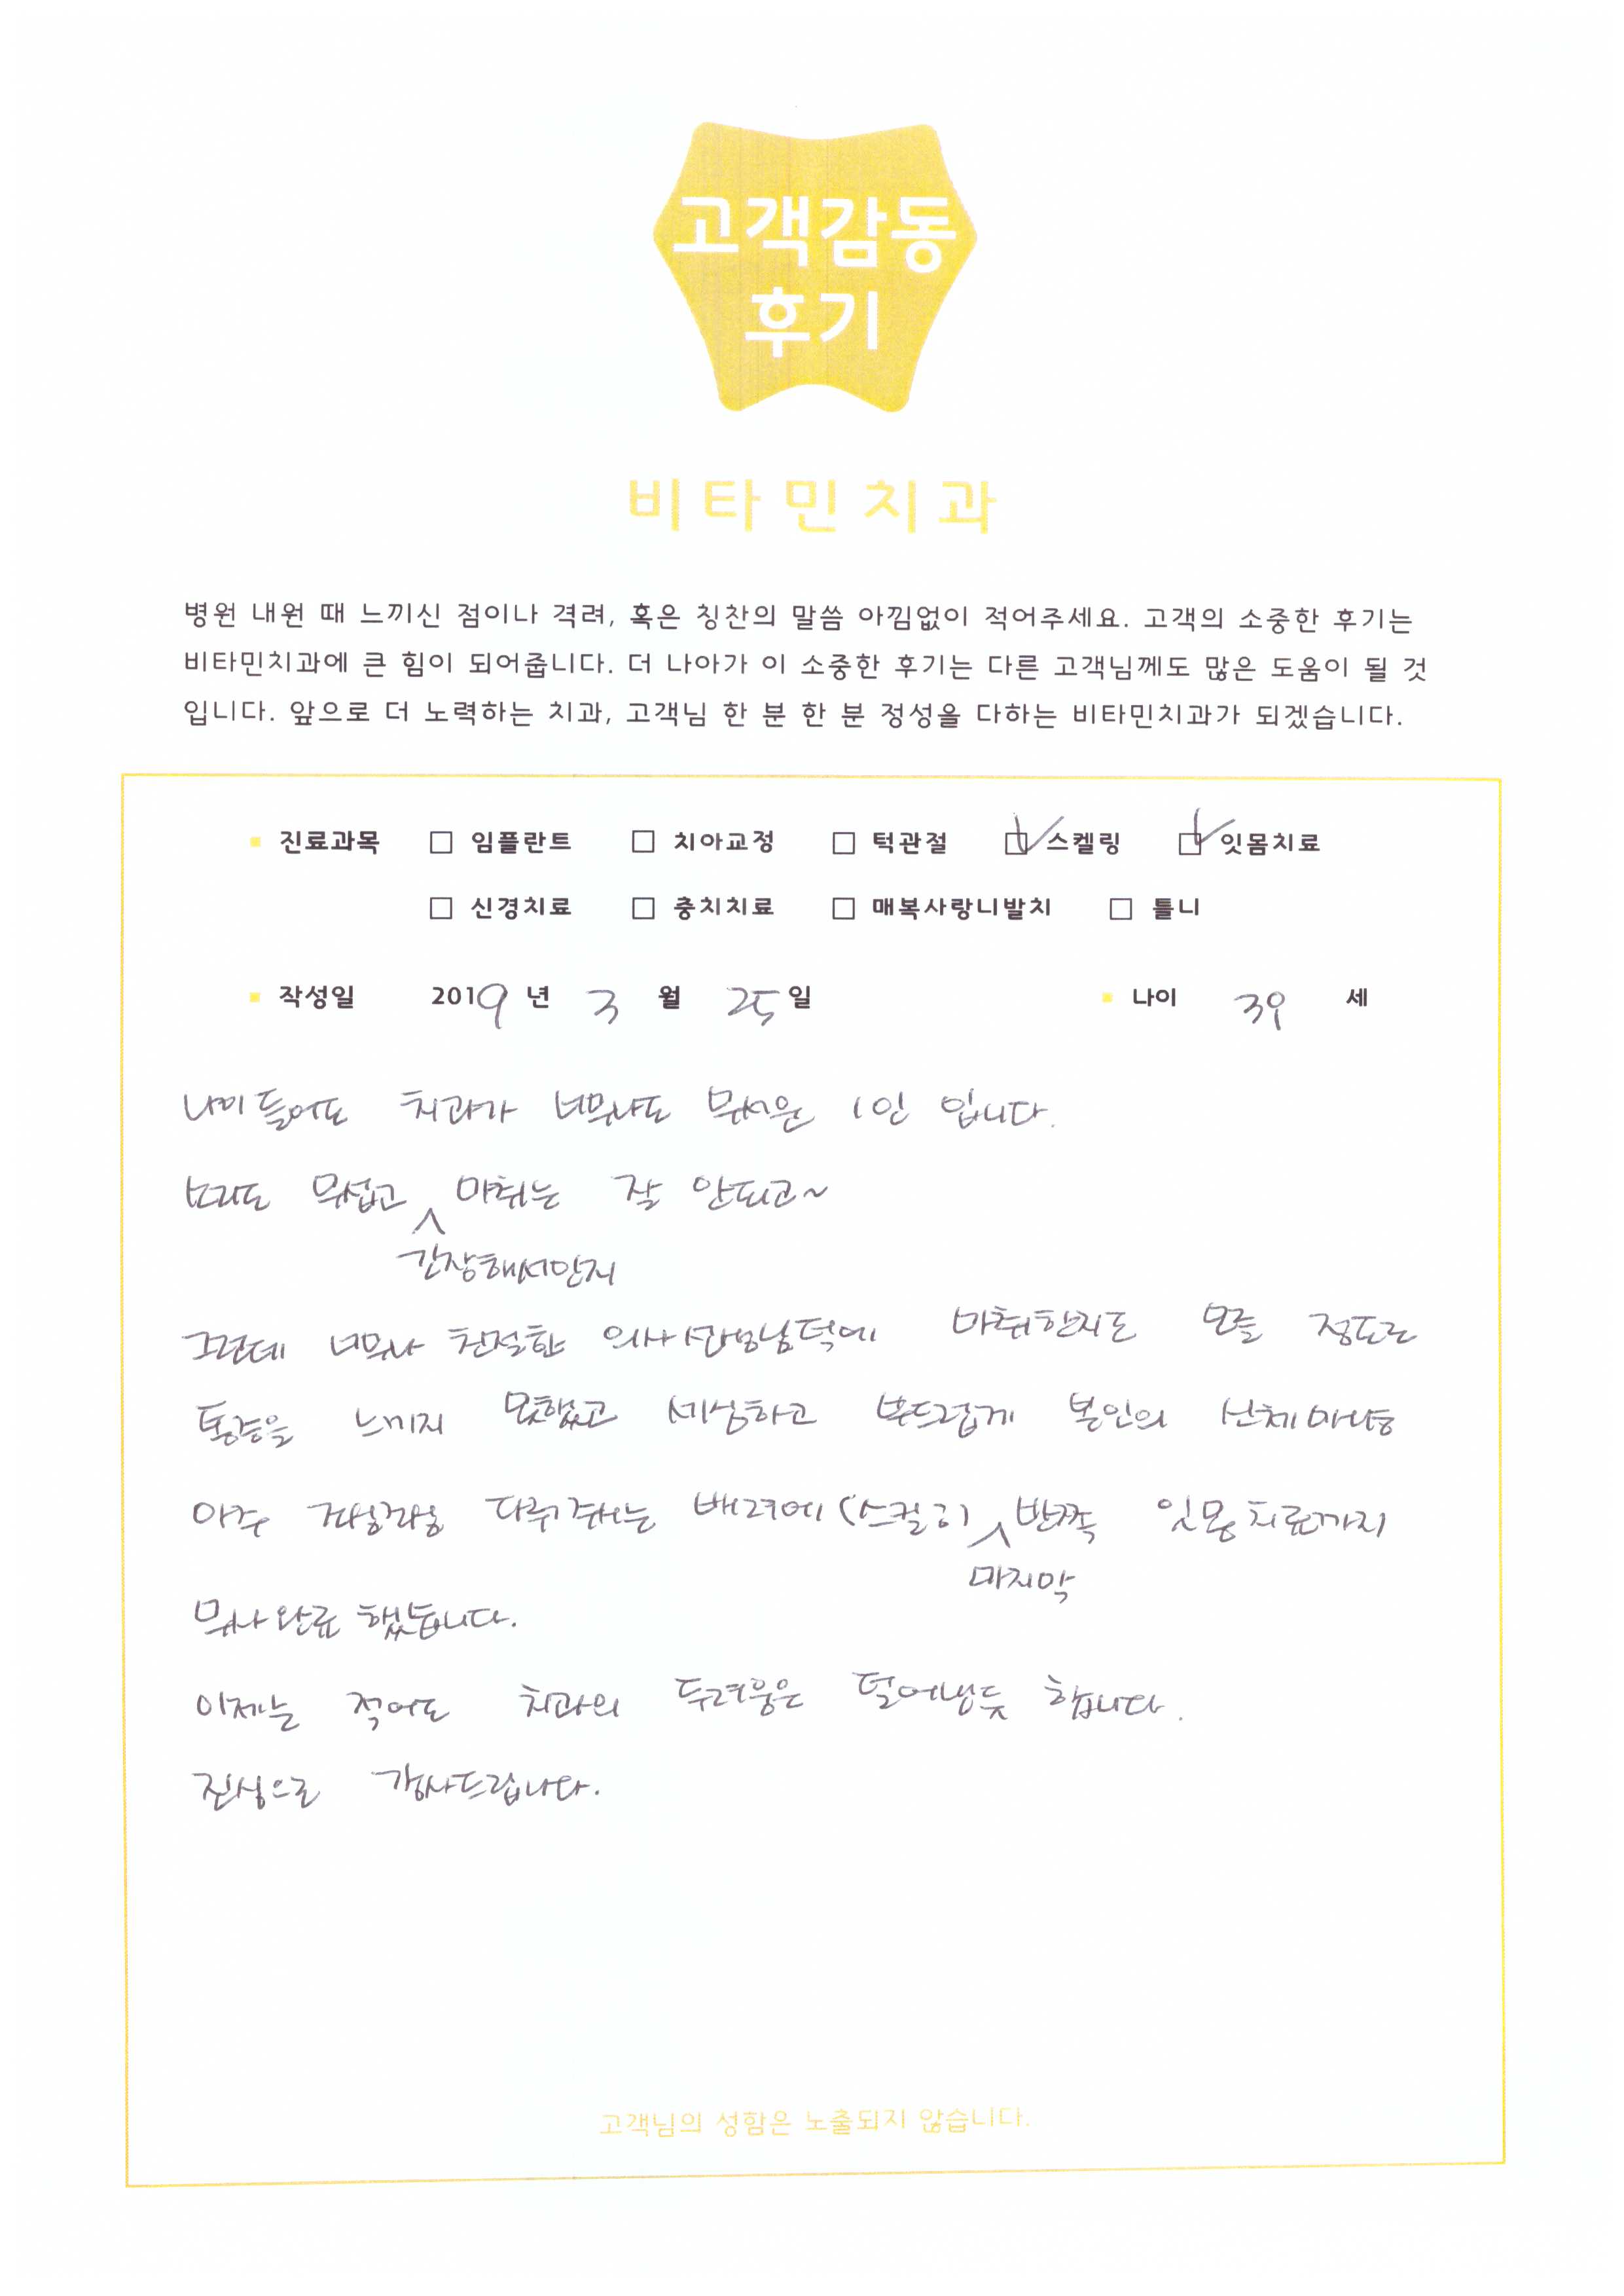 고객감동
후기
비타민치과
병원 내원 때 느끼신 점이나 격려, 혹은 칭찬의 말씀 아낌없이 적어주세요. 고객의 소중한 후기는
비타민치과에 큰 힘이 되어줍니다. 더 나아가 이 소중한 후기는 다른 고객님께도 많은 도움이 될 것
입니다. 앞으로 더 노력하는 치과, 고객님 한 분 한 분 정성을 다하는 비타민치과가 되겠습니다.
진료과목 □ 임플란트 □ 치아교정 □ 턱관절 ☑ 스켈링 ☑ 잇몸치료
□ 신경치료 □ 충치치료 □ 매복사랑니발치 □ 틀니
작성일 2019 년 3 월 25 일 나이 39 세
나이 들어도 치과가 너무나도 무서운 1인 입니다.
무섭고 마취는 잘 안되고~
긴장해서인지
그런데 너무나 친절한 의사선생님덕에 마취한지도 모를 정도로
통증을 느끼지 못했고 세심하고 부드럽게 본인의 신체마냥
아주 조심조심 다뤄주시는 배려에 (스켈링) 반쪽 잇몸치료까지
마지막
무사완료 했습니다.
이제는 적어도 치과의 두려움은 덜어낸듯 합니다.
진심으로 감사드립니다.
고객님의 성함은 노출되지 않습니다.